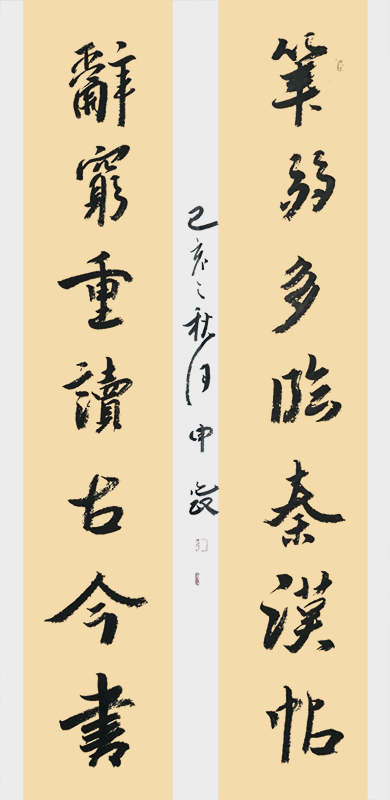 筆弱多臨秦漢帖
辭窮重讀古今書
己亥之秋月申